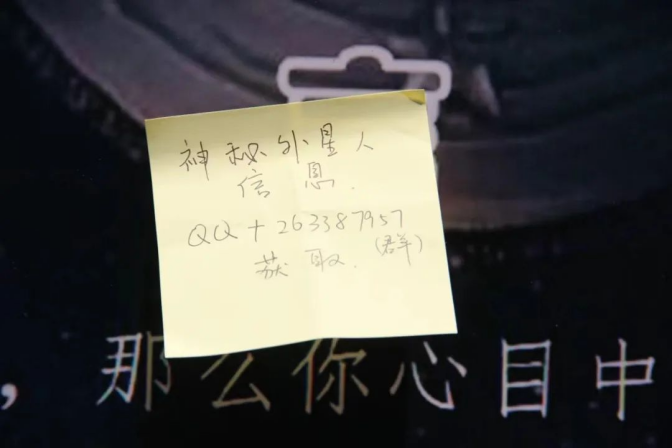 神秘外星人
信息.
QQ+263387957
(群)
获取.
,那么你心目中